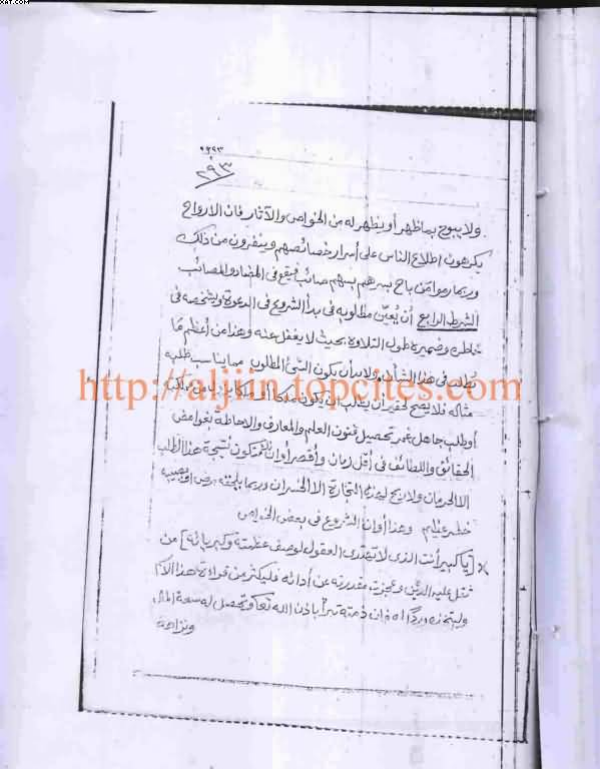 XAT.COM
٢٩٣
٢٩٣
ولا يبوح بما ظهر أو يظهر له من الخواص والآثار فان الارواح
يكرهون اطلاع الناس على أسرار خصائصهم وينفرون من ذلك
وربما رموا من باح بسرهم بسهم صائب فيقع فى المضار والمصائب
الشرط الرابع أن يعين مطلوبه فى بدأ الشروع فى الدعوة ويشخصه فى
خاطره وضميره طول التلاوة بحيث لا يغفل عنه وهذا من أعظم ما
يطلب فى هذا ولابد أن يكون الشئ المطلوب مما يناسب طلبه
مثاله فلا يصح لحقير أن يطلب ان يكون ملكا أو
أو طلب جاهل غمر تحصيل فنون العلم والمعارف والاحاطة بغوامض
الحقائق واللطائف فى أقل زمان وأقصر أوان نتيجة هذا الطلب
الا الحرمان ولا ربح لهذه التجارة الا الخسران وربما يلحقه مرض أو يصيبه
خطر عظيم وهذا أوان الشروع فى بعض الخواص
[يا كبير أنت الذى لا تهتدى العقول لوصف عظمته وكبريائه] من
ثقل عليه الدين وعجزت مقدرته عن أدائه فليكثر من قراءة هذا الاسم
وليتخذه وردا له فان ذمته تبرأ باذن الله تعا وتحصل له سعة المال
ونزاهة
http://aljiin.topcites.com